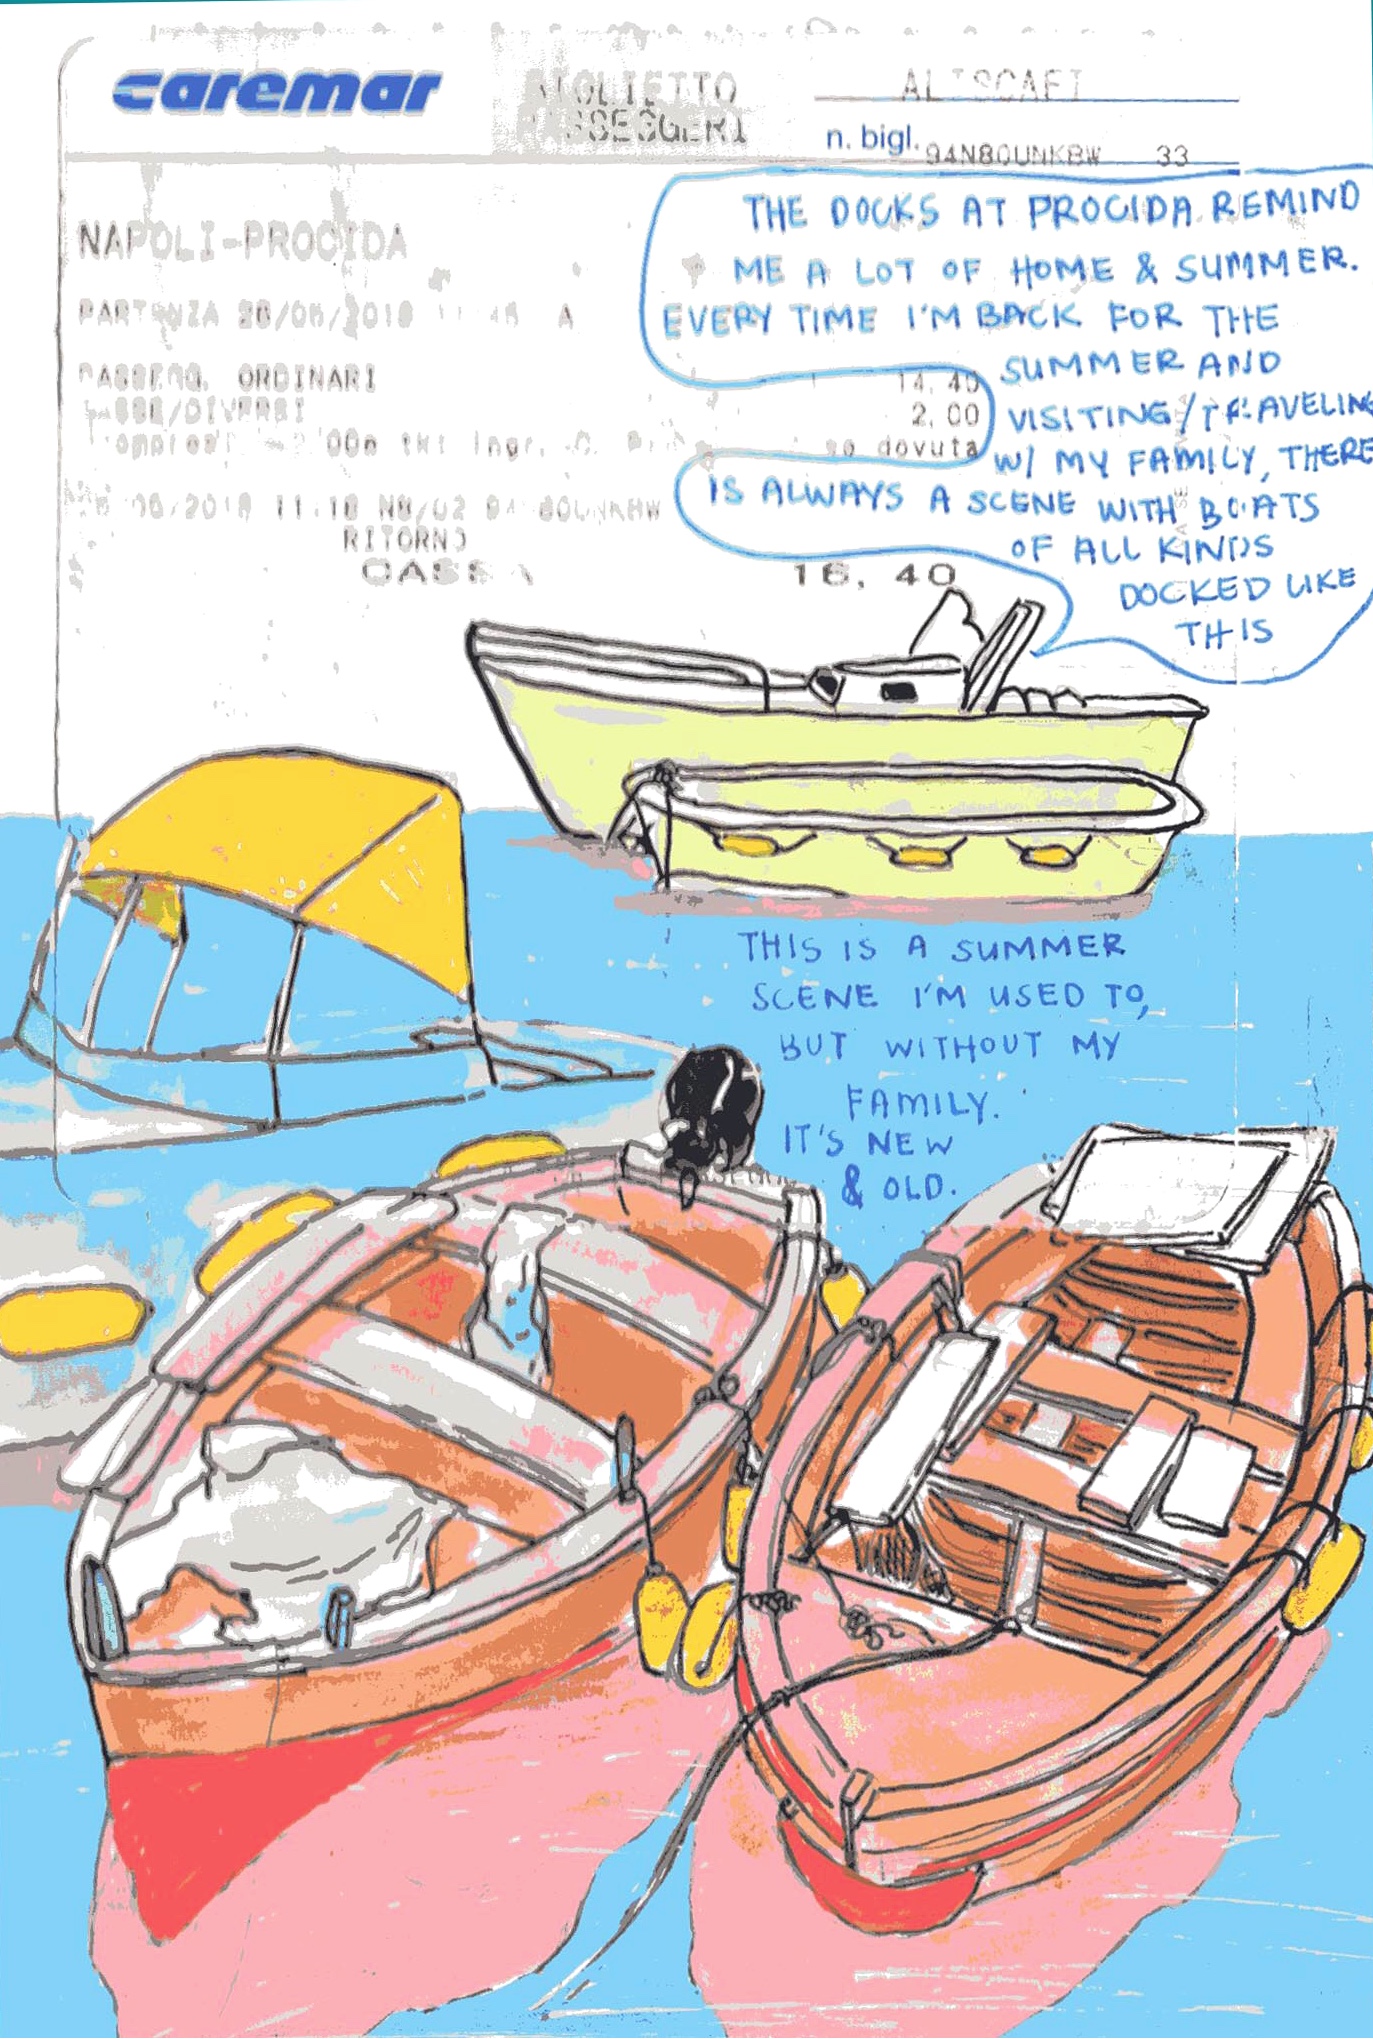 caremar
BIGLIETTO
PASSEGGERI
ALISCAFI
n. bigl. 94N80UNKBW 33
NAPOLI-PROCIDA
PARTENZA A
PASSEGG. ORDINARI 14,40
TASSE/DIVERSI 2,00
dovuta
11:18
RITORNO
CASSA 16,40
THE DOCKS AT PROCIDA REMIND
ME A LOT OF HOME & SUMMER.
EVERY TIME I'M BACK FOR THE
SUMMER AND
VISITING/TRAVELING
W/ MY FAMILY, THERE
IS ALWAYS A SCENE WITH BOATS
OF ALL KINDS
DOCKED LIKE
THIS
THIS IS A SUMMER
SCENE I'M USED TO,
BUT WITHOUT MY
FAMILY.
IT'S NEW
& OLD.